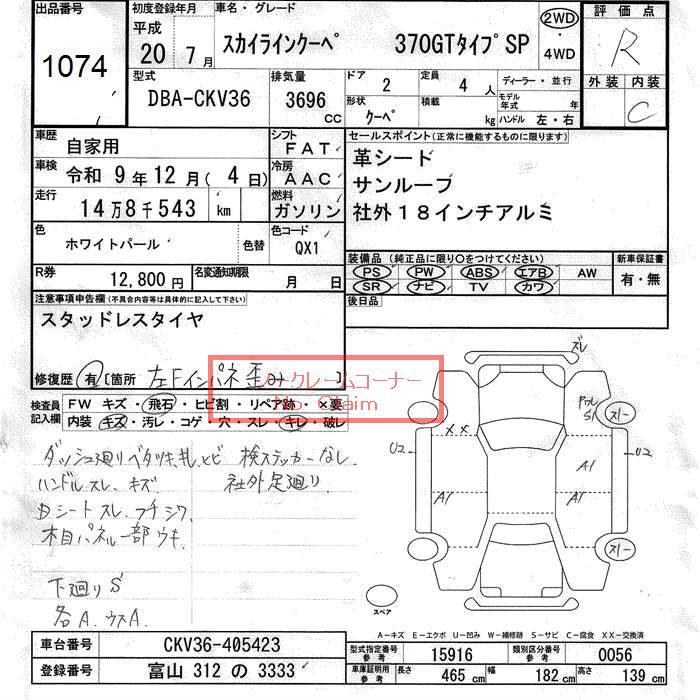 出品番号
1074
初度登録年月
平成
20年 7月
車名・グレード
スカイラインクーペ 370GTタイプSP
2WD
・
4WD
評価点
R
外装 内装
C
型式
DBA-CKV36
排気量
3696
CC
ドア
2
定員
4人
形状
クーペ
積載
kg
ディーラー・並行
モデル年式 年
ハンドル 左・右
車歴
自家用
シフト
FAT
車検
令和 9年12月(4日)
冷房
AAC
走行
14万8千543 km
燃料
ガソリン
色
ホワイトパール
色替
色コード
QX1
R券
12,800円
名変通知期限
月 日
セールスポイント(正常に機能するものに限ります)
革シード
サンルーブ
社外18インチアルミ
装備品(純正品に限り〇をつけてください)
新車保証書
PS PW ABS エアB AW
SR ナビ TV カワ
有・無
後日品
注意事項申告欄(不具合内容等は具体的に記入して下さい)
スタッドレスタイヤ
修復歴 有 [箇所 左Fインパネ歪み ]
ノークレームコーナー
No Claim
検査員
記入欄
FW キズ・飛石・ヒビ割・リペア跡・×要
内装・キズ・汚レ・コゲ・穴・スレ・キレ・破レ
ダッシュ廻りベタツキ, 検ステッカーなし
ハンドルスレ、キズ 社外足廻り
Dシートスレ、フチシワ
木目パネル一部ウキ
下廻りS
各A. ウスA.
ズレ
××
U2
U2
A1
A1
A1
S1
スリー
スリー
スペア
A-キズ E-エクボ U-凹み W-補修跡 S-サビ C-腐食 XX-交換済
車台番号
CKV36-405423
登録番号
富山 312 の 3333
型式指定番号
参考
15916
類別区分番号
参考
0056
車庫証明用
参考
長さ
465 cm
幅
182 cm
高さ
139 cm